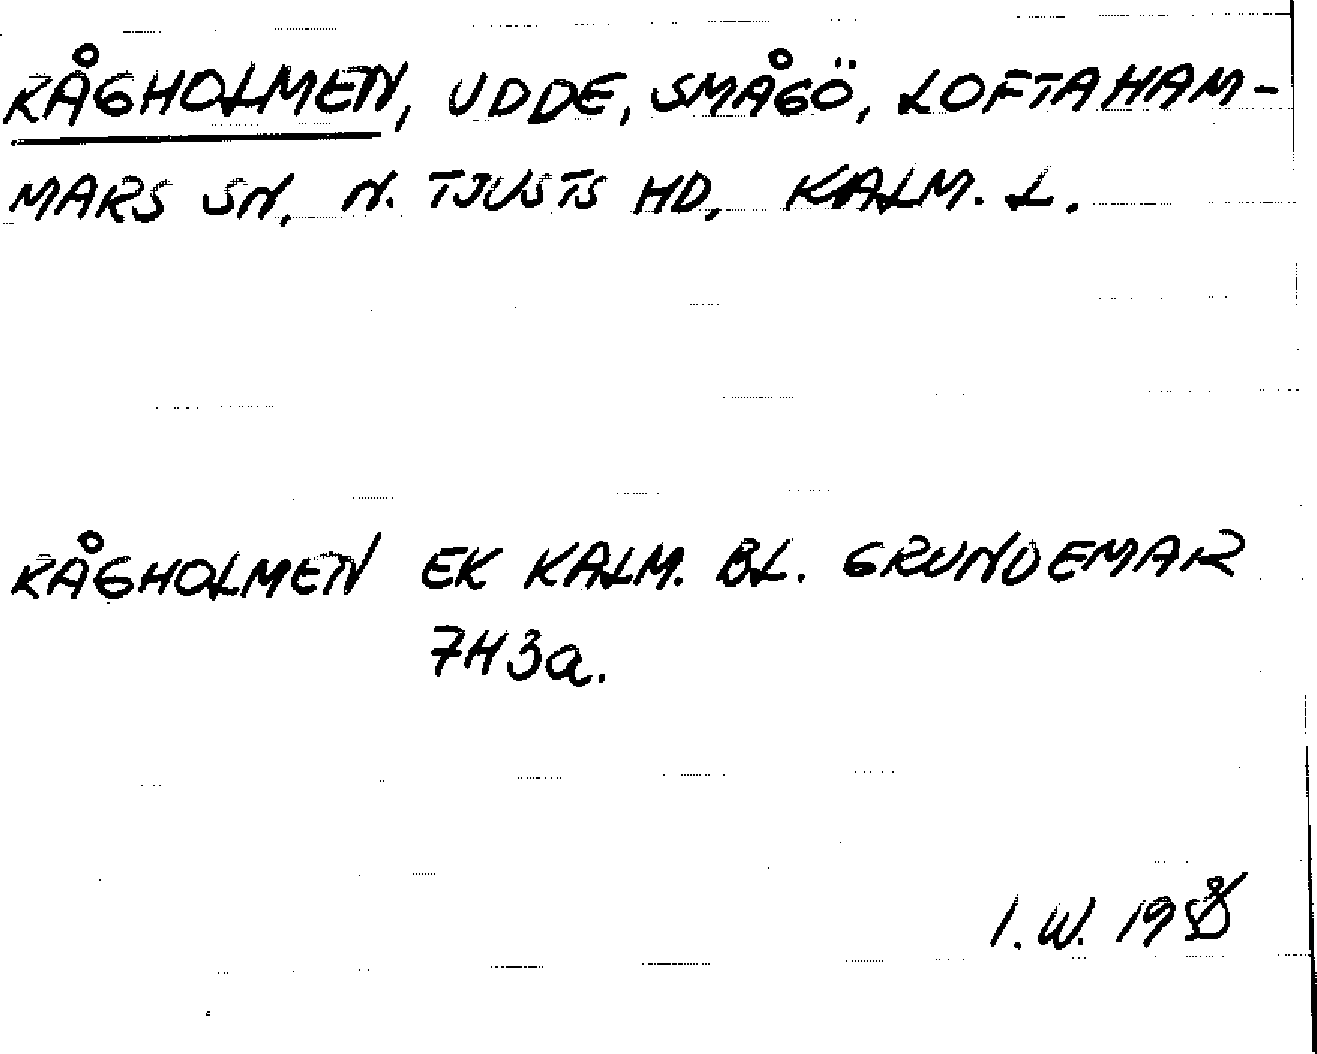 RÅGHOLMEN, UDDE, SMÅGÖ, LOFTAHAM-
MARS SN, N. TJUSTS HD, KALM. L.
RÅGHOLMEN EK KALM. BL. GRUNDEMAR
7H3a.
I.W.